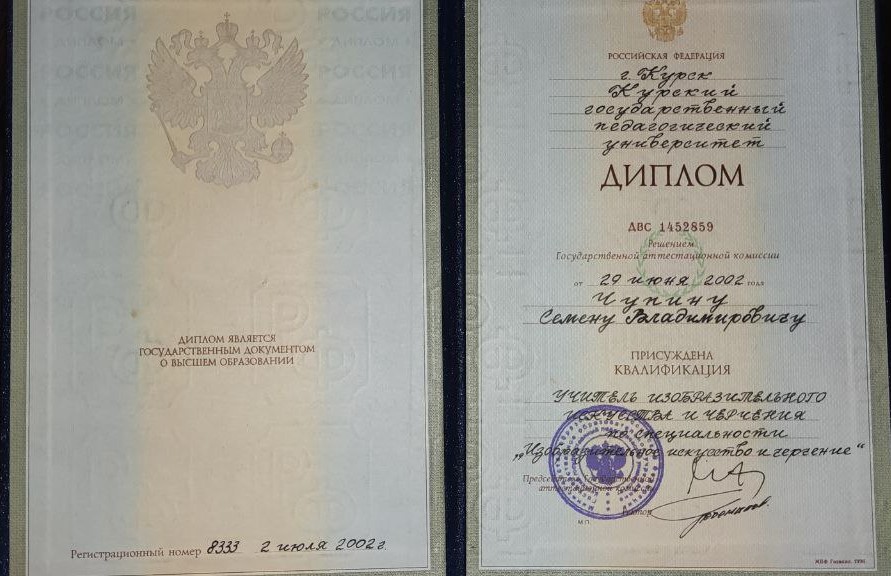 РОССИЯ РОССИЯ
ДИПЛОМ ДИПЛОМ
РОССИЯ РОССИЯ
ДИПЛОМ ЯВЛЯЕТСЯ
ГОСУДАРСТВЕННЫМ ДОКУМЕНТОМ
О ВЫСШЕМ ОБРАЗОВАНИИ
Регистрационный номер 8333 2 июля 2002г.
РОССИЙСКАЯ ФЕДЕРАЦИЯ
г. Курск
Курский
государственный
педагогический
университет
ДИПЛОМ
ДВС 1452859
Решением
Государственной аттестационной комиссии
от 29 июня 2002 года
Чупину
Семену Владимировичу
ПРИСУЖДЕНА
КВАЛИФИКАЦИЯ
УЧИТЕЛЬ ИЗОБРАЗИТЕЛЬНОГО
ИСКУССТВА И ЧЕРЧЕНИЯ
по специальности
„Изобразительное искусство и черчение“
Председатель Государственной
аттестационной комиссии
Ректор
М.П.